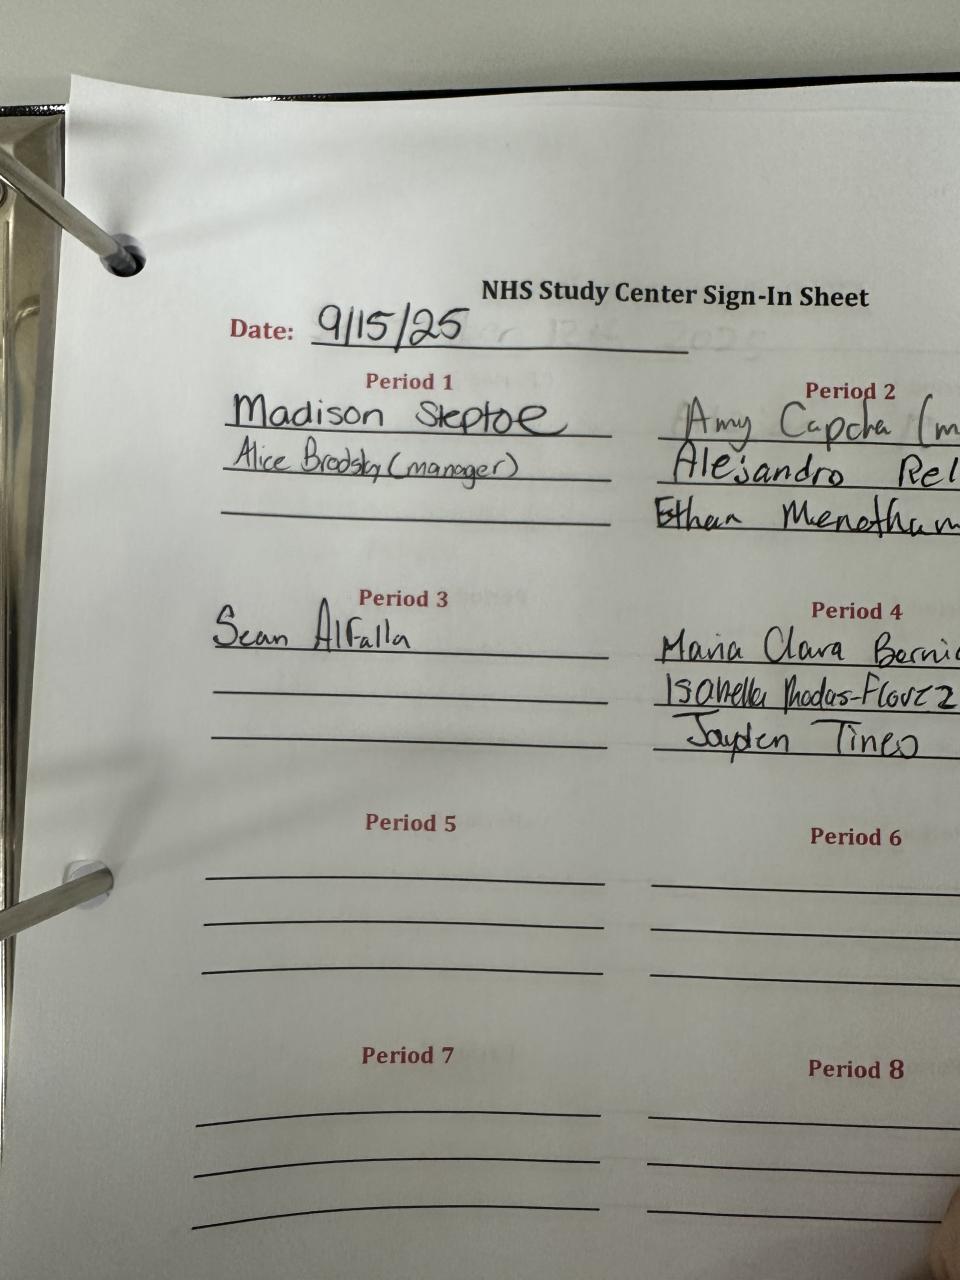 NHS Study Center Sign-In Sheet
Date: 9/15/25
Period 1
Madison Steptoe
Alice Brodsky (manager)
Period 2
Amy Capcha (m
Alejandro Rel
Ethan Menetham
Period 3
Sean AlFalla
Period 4
Maria Clara Bernic
Isabella Rhodas-Florez
Jayden Tineo
Period 5
Period 6
Period 7
Period 8